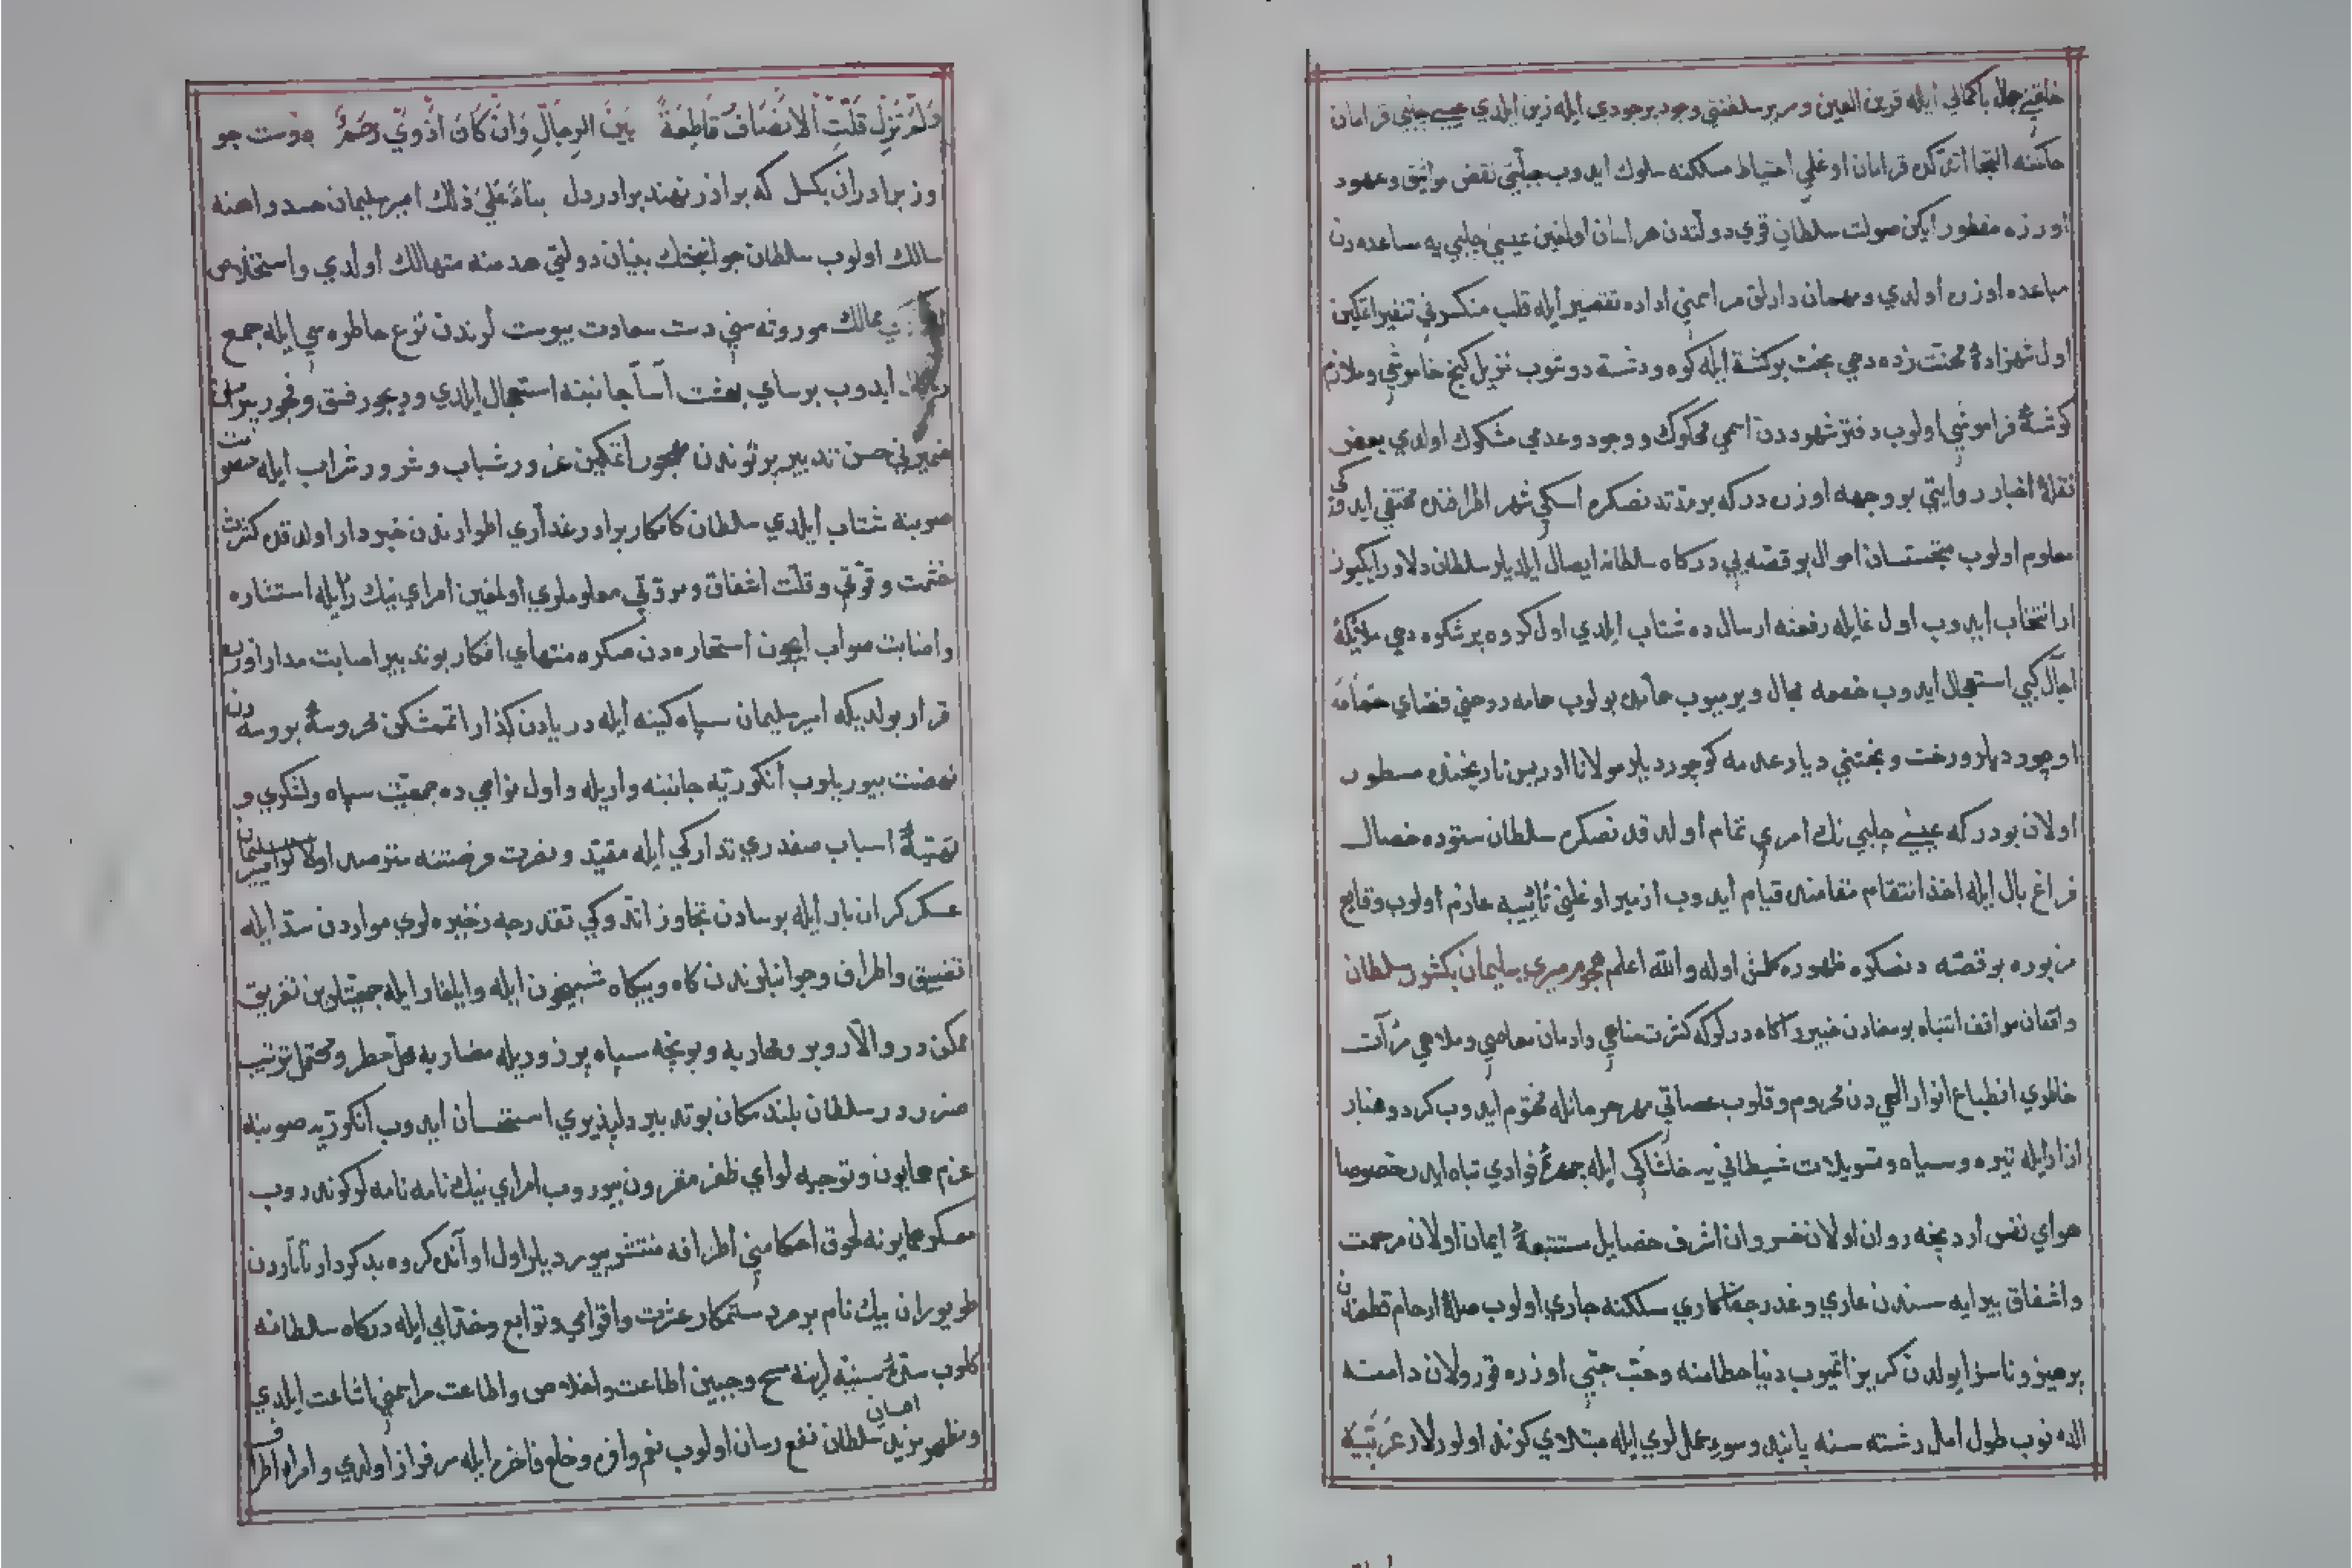 خلقنے جمال باكمالي ايله قرين العين وسرير سلطنتي وجود برجودي ايله زين ايلدي عيسے چلبي قرامان
حاكمنه التجا اتدكده قرامان اوغلي احتياط مسلكنه سلوك ايدوب جبلّتي نقض مواثيق وعهود
اوزره مفطور ايكن صولت سلطان قوي دولتدن هراسان اولمغين عيسي چلبي يه مساعده دن
مباعده اوزره اولدي ومهمان دارلق مراسمني اداده تقصير ايله قلب منكسرني تنفير اتمكين
اول شهزادهٔ محنت زده دخي بخت بركشته ايله كوه ودشته دوشوب نزيل كنج خاموشي وملازم
كوشهٔ فراموشي اولوب دفتر شهوددن اسمي محكوك ووجود وعدمي مشكوك اولدي بعض
نقلهٔ اخبار روايتي بو وجهه اوزره دركه بر مدتدنصكره اسكي شهر اطرافنده مختفي ايدوكي
معلوم اولوب متجسسان احوال بو قصّه يي دركاه سلطانه ايصال ايلديلر سلطان دلاور ايكيوز
ار انتخاب ايدوب اول غايله رفعنه ارسالده شتاب ايلدي اول كروه پرشكوه دخي ملائكهٔ
اجال كبي استعجال ايدوب خصمه مجال ويرميوب حمامده بولوب جامه روحني قضاي حمامه
اوچورديلر ورخت وبختني ديار عدمه كوچورديلر مولانا ادريس تاريخنده مسطور
اولان بودركه عيسے چلبي نك امري تمام اولدقدنصكره سلطان ستوده خصال
فراغ بال ايله اخذ انتقام مقامنده قيام ايدوب ازمير اوغلني تأديبه عازم اولوب وقايع
مزبوره بو قصّه دنصكره ظهوره كلمش اوله والله اعلم هجوم ميري سليمان بكشور سلطان
واقفان مواقف انتباه بو معنادن خبير وآكاه درلركه كثرت مناهي وادمان معاصي وملاهي مرآت
خاطري انطباع انوار الهيدن محروم وقلوب عصاتي مهر حرمانله مختوم ايدوب كرد وغبار
ازار ايله تيره وسياه وتسويلات شيطانيه خاشاكي ايله چهرهٔ فوادي تباه ايدر خصوصا
هواي نفس اردنجه روان اولان خسروان اشرف خصايل مستتبعهٔ ايمان اولان مرحمت
واشفاق پيرايه سندن عاري وغدر وجفاكاري مسلكنه جاري اولوب صلهٔ ارحام قطعندن
پرهيز وناسزا يولدن كريز اتميوب دنيا حطامنه وحبّ جبلّي اوزره قورولان دامنه
الدنوب طول امل رشته سنه پابند وسوء عمللري ايله مبتلاي كزند اولورلر عربيّه
وَلَمْ تَزَلْ قِلَّتُ الْاِنْصَافِ قَاطِعَةً بَيْنَ الرِّجَالِ وَاِنْ كَانُوا ذَوِي رَحَمٍ بدوست جو
وز برادران بكسل كه برادر نهند برادر دل بناءً علي ذلك امير سليمان حسد راهنه
سالك اولوب سلطان جوانبختك بنيان دولتي هدمنه متهالك اولدي واستخلاص
ممالك موروثه سني دست سعادت پيوست لرندن نزع خاطره سي ايله جمع
ايدوب برساي بهشت آسا جانبنه استعجال ايلدي وديجور فسق وفجور
ضميرني حسن تدبير پرتوندن مهجور اتمكين غرور شباب وشرور شراب ايله
صوبنه شتاب ايلدي سلطان كامكار برادر غداري اطوارندن خبردار اولدقده كثرت
حشمت وقوّتي وقلّت اشفاق ومروّتي معلوملري اولمغين امراي نيك رأيله استشاره
واصابت صواب ايچون استخاره دن صكره منتهاي افكار بو تدبير اصابت مدار اوزره
قرار بولديكه امير سليمان سپاه كينه ايله دريادن كذار اتمشكن محروسهٔ بروسه دن
نهضت بيوريلوب انكوريّه جانبنه واريله واول نواحيده جمعيّت سپاه ولشكري و
تهيّهٔ اسباب صفدري تداركي ايله مقيّد ونصرت فرصتنه مترصد اولالر امير سليمان
عسكر كران بار ايله بروسادن تجاوز اتدوكي تقديرجه ذخيره لري مواردن سدّ ايله
تضييق واطراف وجوانبلرندن كاه وبيكاه شبيخون ايله وايلغار ايله جمعيّتلرين تفريق
ممكندر والّا روبرو محاربه وبونجه سپاه پرزوريله مضاربه محلّ خطر ومحتمل ترتيب
ضرردر سلطان بلند مكان بو تدبير دلپذيري استحسان ايدوب انكوريّه صوبنه
عزم همايون وتوجّه لواي ظفر مقرون بيوروب امراي نيك نامه نامه لر كوندروب
معسكر همايونه لحوق احكامني اطرافه منتشر بيورديلر اول اوانده كروه بدكردار تاتاردن
طويوران بيك نام بر مرد ستمكار عشرت واقوامي وتوابع وخدّامي ايله دركاه سلطانه
كلوب سدّهٔ سنيّه لرينه مسح وجبين اطاعت واخلاص واطاعت مراسمني اشاعت ايلدي
ومظهر مزيد احسان سلطان نفع رسان اولوب نعم وافره وخلع فاخره ايله سرفراز اولدي وامراء اطراف